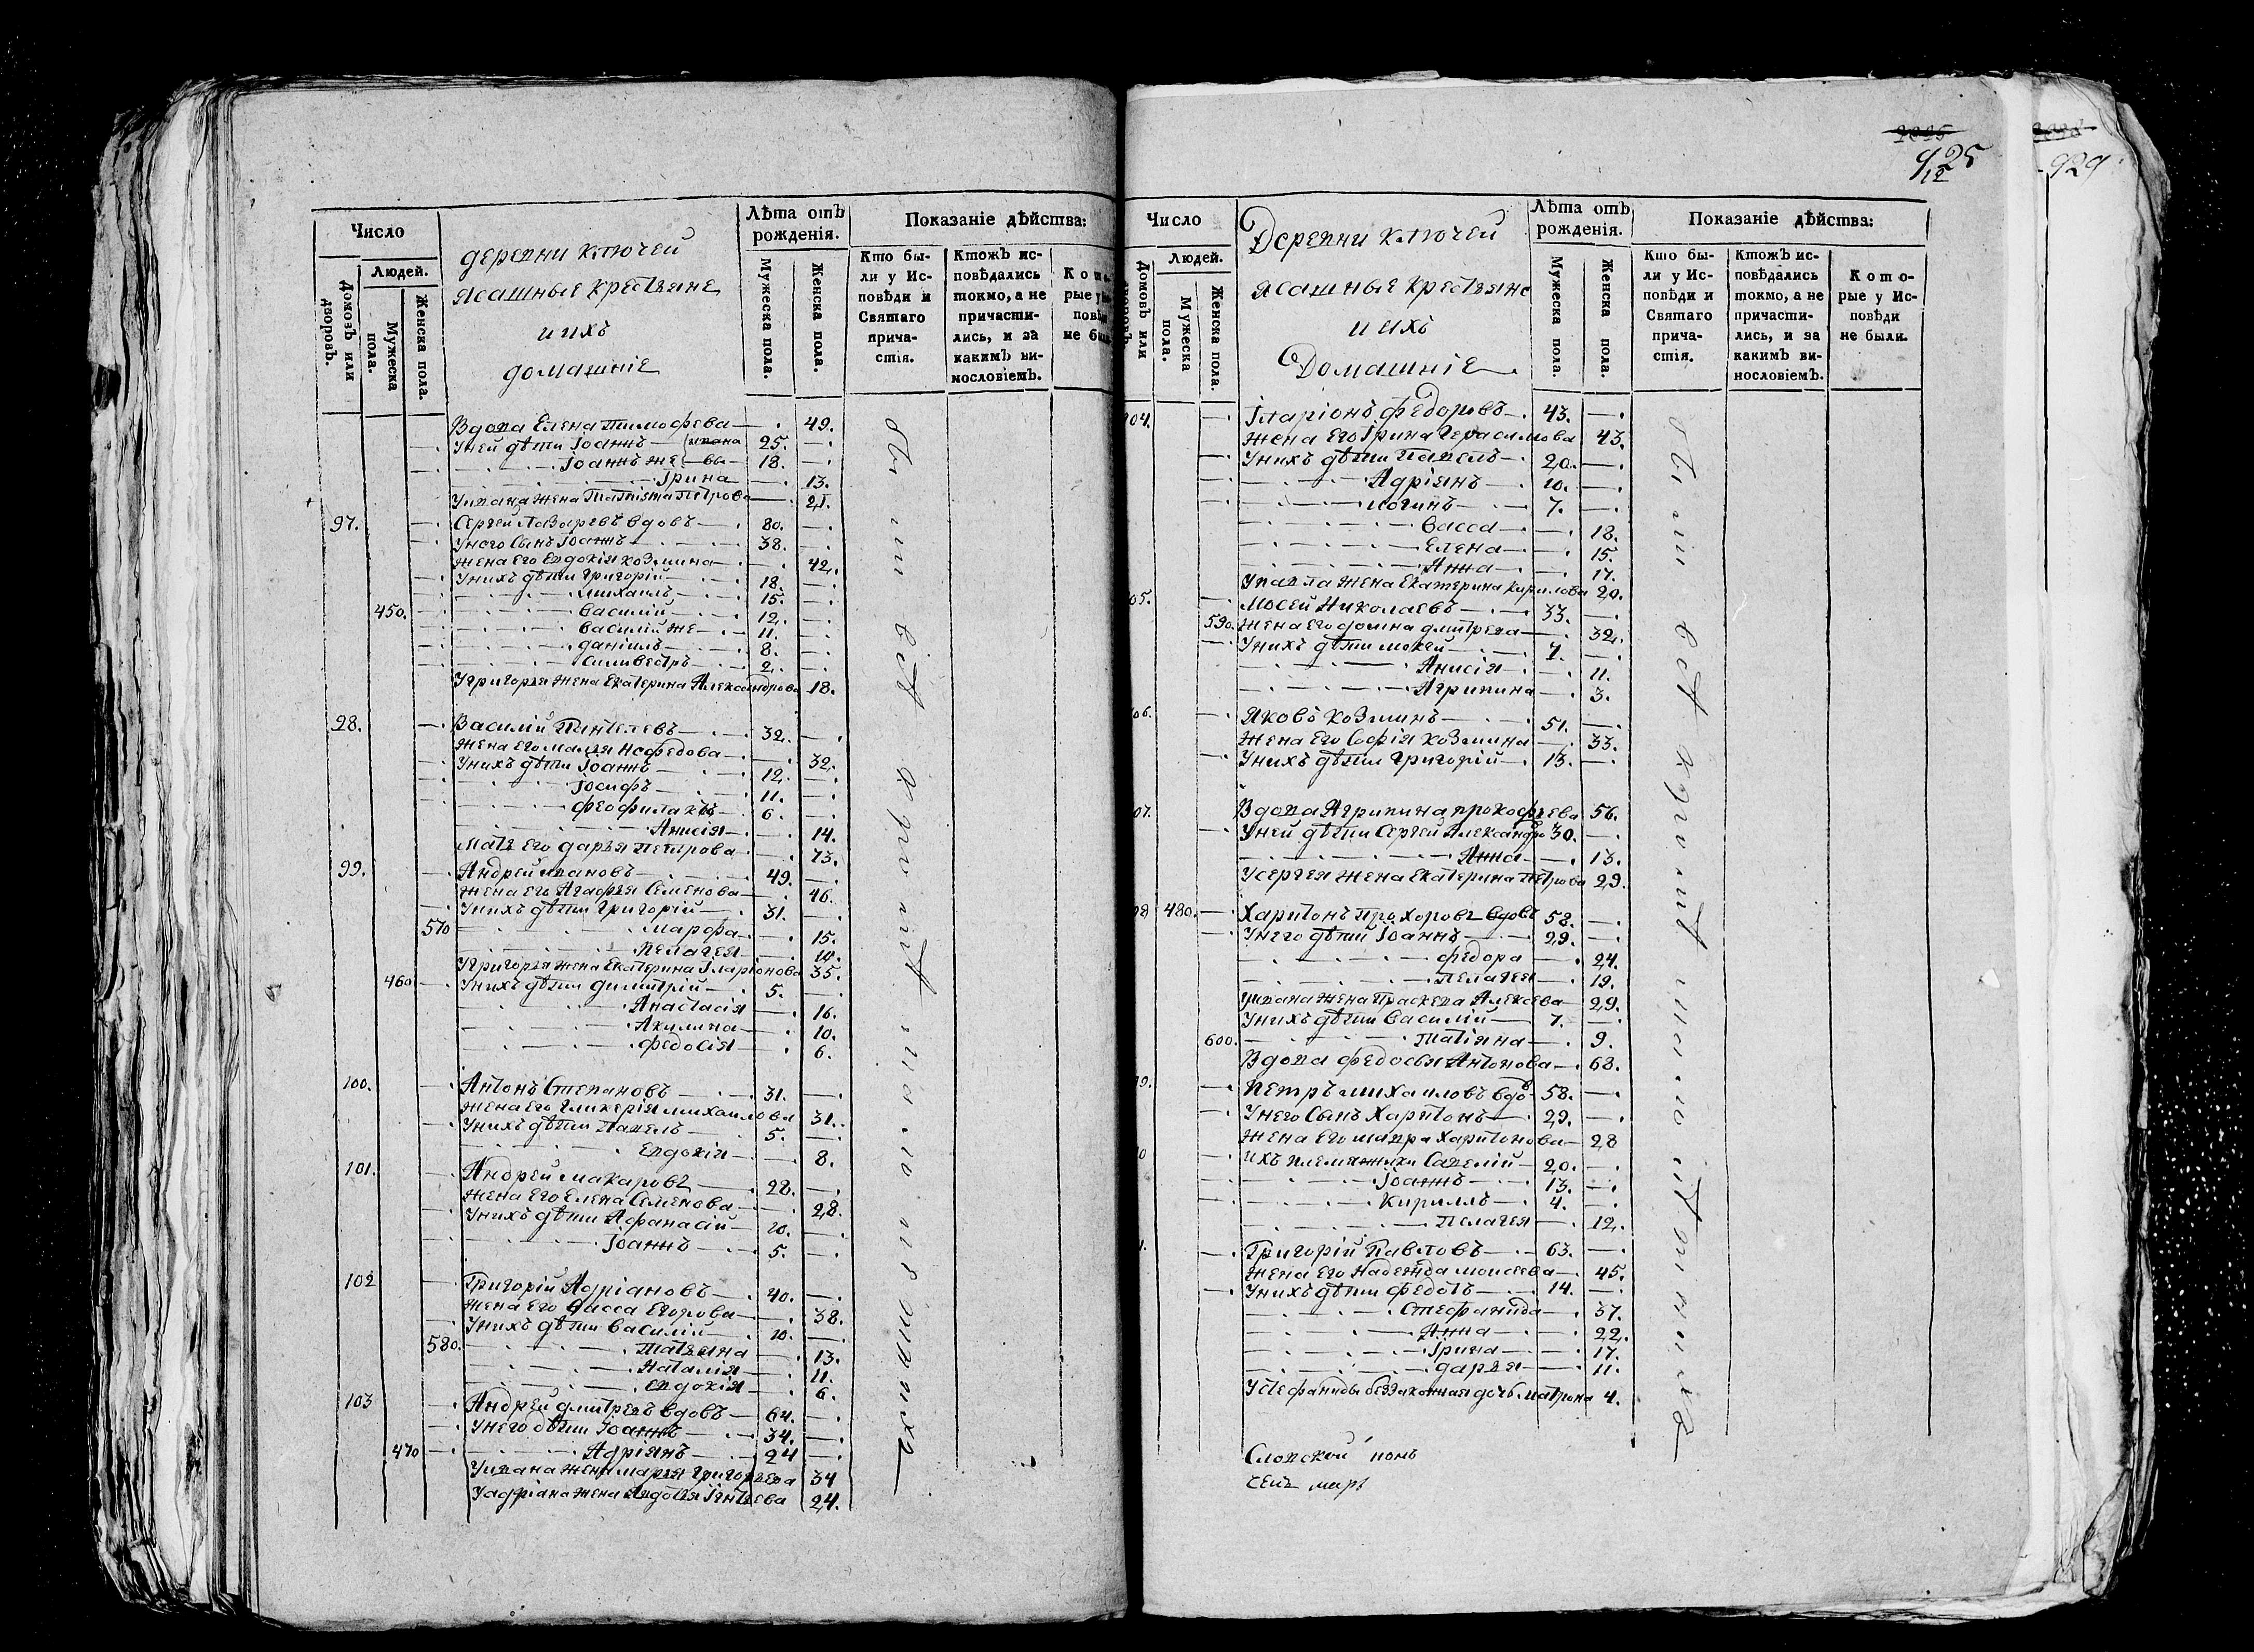 Число
Людей.
Домовъ или дворовъ.
Мужеска пола.
Женска пола.
деревни ключей
ясашные крестьяне
и ихъ
домашніе
Лѣта отъ рожденія.
Мужеска пола.
Женска пола.
Показаніе дѣйства:
Кто были у Исповѣди и Святаго причастія.
Ктожъ исповѣдались токмо, а не причастились, и за какимъ винословіемъ.
Вдова Елена тимофеева — 49.
Унеи дѣти Іоаннъ — ивана 25. —
Іоаннъ же — вы 18. —
Ірина — 13.
Уивана жена Петрова — 21.
97. Сергеи Лазаревъ вдовъ — 80. —
Унего Сынъ Іоаннъ — 38. —
жена Его Евдокія козмина — 42.
Унихъ дѣти Григорій — 18. —
михаилъ — 15. —
450. василій — 12. —
василій же — 11. —
даніилъ — 8. —
силивестръ — 2. —
Угригорья жена Екатерина Александрова 18.
98. Василій Пантелеевъ — 32. —
жена его марья неѳедова — 32.
Унихъ дѣти Іоаннъ — 12. —
Іосифъ — 11. —
феофилактъ — 6. —
Анисія — 14.
мать его дарья петрова — 73.
99. Андреи ивановъ — 49. —
жена его Агафья Семенова — 46.
Унихъ дѣти Григорій — 31. —
570 марфа — 15.
Пелагея — 10.
Угригорья жена Екатерина Іларіонова 35.
460 Унихъ дѣти димитрій — 5. —
Анастасія — 16.
Акулина — 10.
федосія — 6.
100. Антонъ Степановъ — 31. —
жена его гликерія михаилова 31.
Унихъ дѣти Павелъ — 5. —
Евдокія — 8.
101. Андреи макаровъ — 28. —
жена Его Елена Семенова — 28.
Унихъ дѣти Афанасій — 10. —
Іоаннъ — 5. —
102 Григорій Адріановъ — 40. —
жена его васса Егорова — 38.
Унихъ дѣти василій — 10. —
580. татьяна — 13.
Наталія — 11.
евдокія — 6.
103 Андреи дмитревъ вдовъ — 64. —
Унего дѣти Іоаннъ — 34. —
470 Адріянъ — 24 —
Уивана жена марья Григорьева 34
Уадріана жена 24.
925
929
Число
Людей.
Домовъ или
Мужеска пола.
Женска пола.
Деревни ключей
ясашные крестьяне
и ихъ
Домашніе
Лѣта отъ рожденія.
Мужеска пола.
Женска пола.
Показаніе дѣйства:
Кто были у Исповѣди и Святаго причастія.
Ктожъ исповѣдались токмо, а не причастились, и за какимъ винословіемъ.
Которые у Исповѣди не были.
04. Іларіонъ федоровъ — 43. —
жена Его Ірина Герасимова 43.
Унихъ дѣти Павелъ — 20. —
Адріянъ — 10. —
логинъ — 7. —
васса — 18.
Елена — 15.
Анна — 17.
Упавла жена Екатерина кирилова 20.
05. Мосей Николаевъ — 33. —
590. жена его домна дмитрева — 32.
Унихъ дѣти мокей — 7. —
Анисія — 11.
Агрипина — 3.
06. Яковъ козминъ — 51. —
жена Его Софія козмина — 33.
Унихъ дѣти Григорій — 13. —
07. Вдова Агрипина прокофьева 56.
Унеи дѣти Сергеи Александро 30. —
Анна — 13.
Усергея жена Екатерина петрова 29.
08 480. Харитонъ Прохоровъ вдовъ 58. —
Унего дѣти Іоаннъ — 29. —
федора — 24.
пелагея — 19.
Уивана жена Праскева Алексева — 29.
Унихъ дѣти василій — 7. —
600. татіяна — 9.
Вдова федосья Антонова — 68.
09. Петръ михаиловъ вдо 58. —
Унего Сынъ Харитонъ — 29. —
жена Его мавра харитонова — 28
10 Ихъ племянники Савелій — 20. —
Іоаннъ — 13. —
кириллъ — 4. —
пелагея — 12.
Григорій Павловъ — 63. —
жена Его Надежда моисеева — 45.
Унихъ дѣти федотъ — 14. —
Стефанида — 37.
Анна — 22.
Ірина — 17.
дарья — 11.
Устефаниды беззаконная дочь матрона 4.